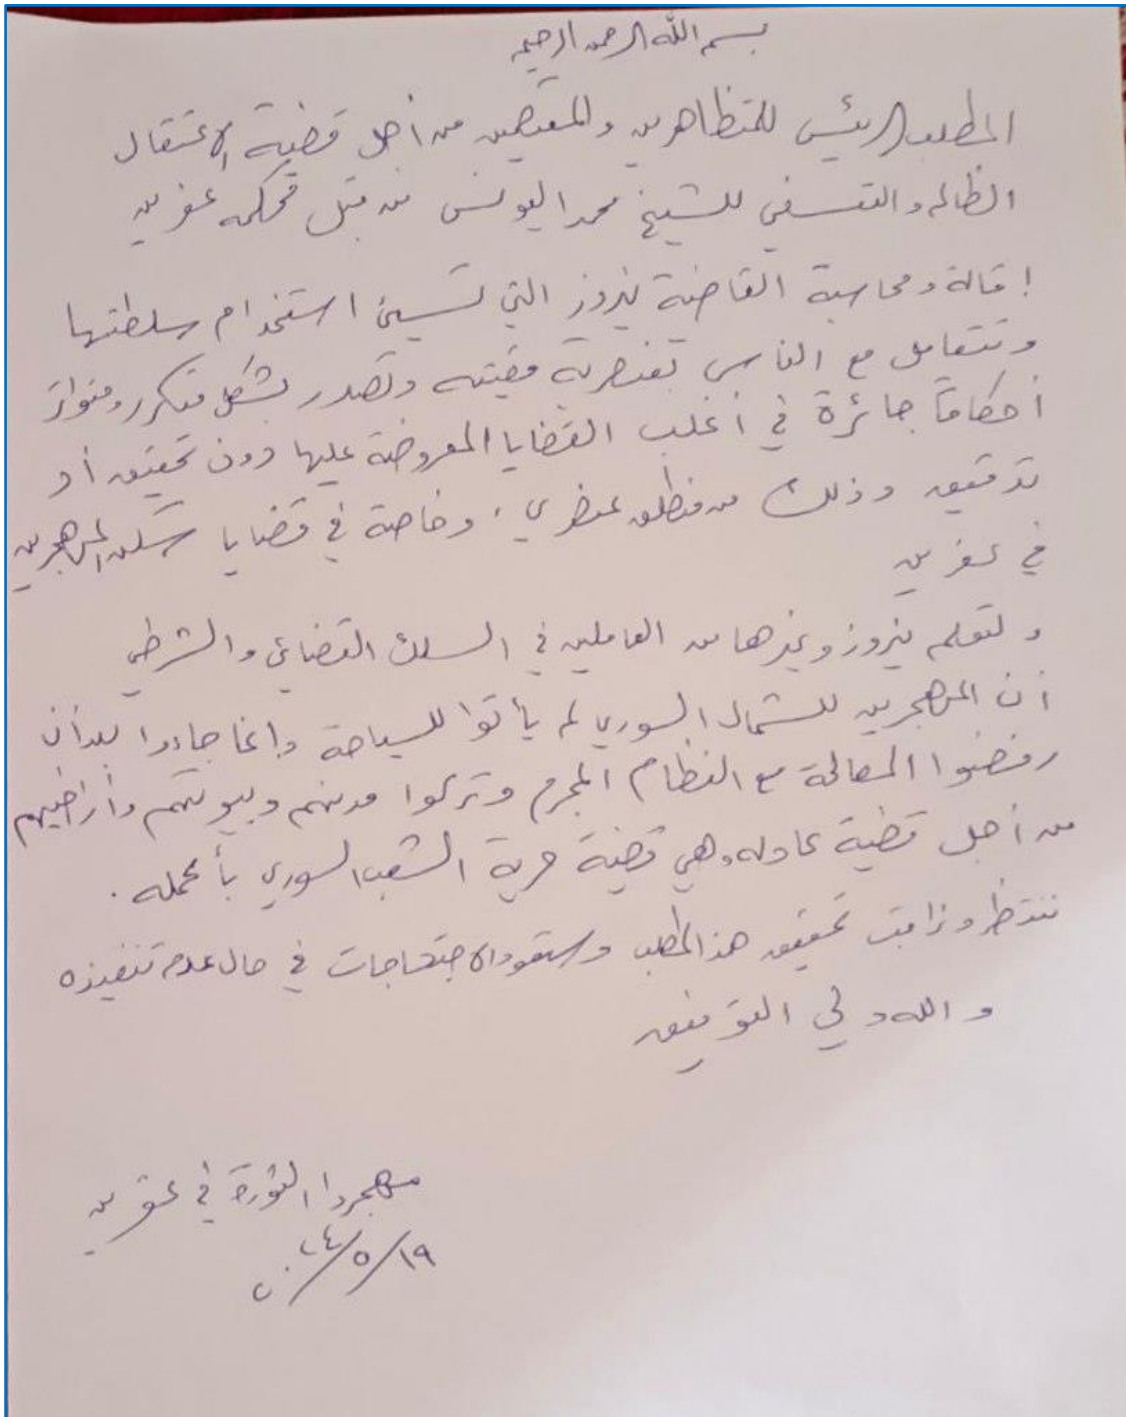 بسم الله الرحمن الرحيم
المطلب الرئيسي للمتظاهرين والمعتصمين من أجل قضية الاعتقال
الظالم والتعسفي للشيخ محمد اليونس من قبل محكمة عفرين
إقالة ومحاسبة القاضية نيروز التي تسيئ استخدام سلطتها
وتتعامل مع الناس بعنصرية مقيتة وتصدر بشكل متكرر ومتواتر
أحكاماً جائرة في أغلب القضايا المعروضة عليها دون تحقيق أو
تدقيق وذلك من منطلق عنصري، وخاصة في قضايا سكن المهجرين
في عفرين
ولتعلم نيروز وغيرها من العاملين في السلك القضائي والشرطي
أن المهجرين للشمال السوري لم يأتوا للسياحة وإنما جاءوا بعد أن
رفضوا المصالحة مع النظام المجرم وتركوا مدنهم وبيوتهم وأراضيهم
من أجل قضية عادلة وهي قضية حرية الشعب السوري بأكمله.
ننتظر ونراقب تحقيق هذا المطلب وستعود الاحتجاجات في حال عدم تنفيذه
والله ولي التوفيق
مهجروا الثورة في عفرين
١٩/٥/٢٠٢٤